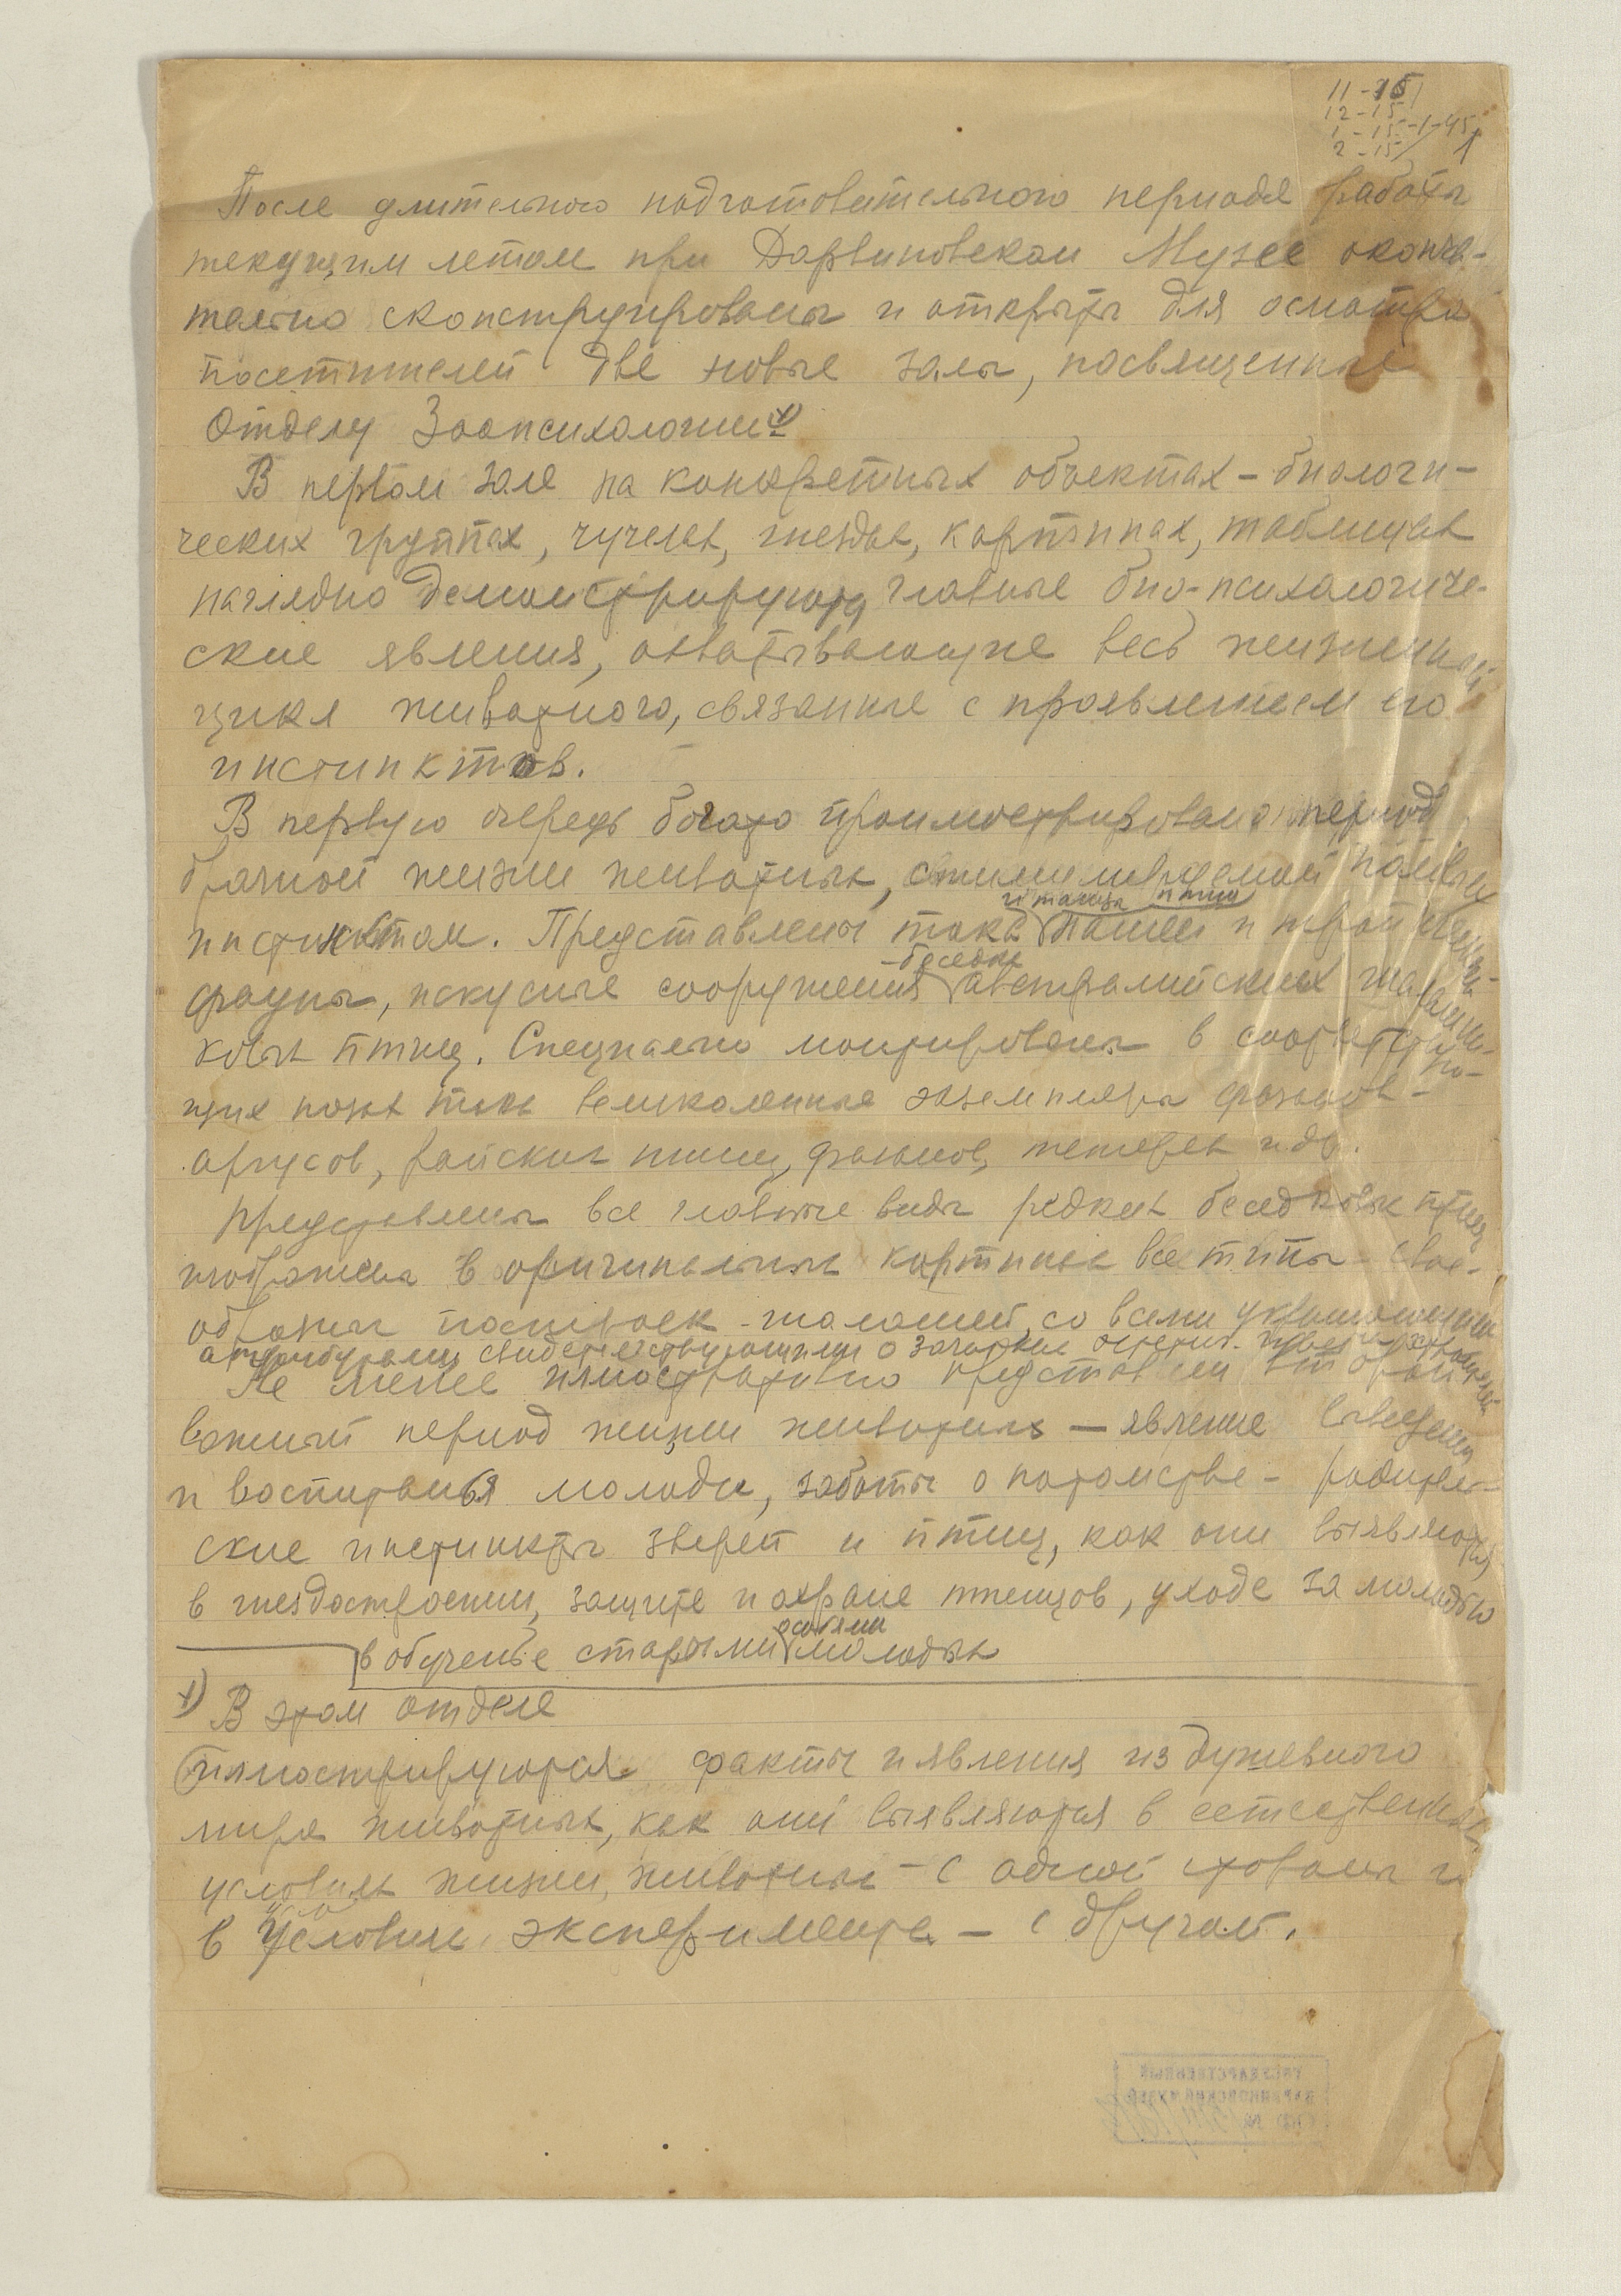 11-15
12-15
1-15-1-45
2-15
1
После длительного подготовительного периода работы
текущим летом при Дарвиновском Музее оконча-
тельно сконструированы и открыты для осмотра
посетителей две новые залы, посвященные
Отделу Зоопсихологии х)
В первом зале на конкретных объектах - биологи-
ческих группах, чучелах, гнездах, картинах, таблицах
наглядно демонстрируют главные био-психологиче-
ские явления, охватывающие весь жизненный
цикл животного, связанные с проявлением его
инстинктов.
В первую очередь богато проиллюстрирован период
брачной жизни животных, стимулируемой половым
и танцы птиц
инстинктом. Представлены тока нашей и тропической
-беседки
фауны, искусные сооружения австралийских шалашни-
ковых птиц. Специально монтированы в соответствую-
щих позах тока великолепные экземпляры фазанов-
аргусов, райских птиц, фазанов, тетерев и др.
Представлены все главные виды редких беседковых птиц
изображены в оригинальных картинах все типы свое-
образных построек-шалашей, со всеми украшениями
атрибутами свидетельствующими о зачатках эстетич.
Не менее иллюстративно представлен второй
важный период жизни животных — явление выведения
и воспитанья молоди, заботы о потомстве - родитель-
ские инстинкты зверей и птиц, как они выявляются
в гнездостроении, защите и охране птенцов, уходе за молодью
особями
в обученье старыми молодых
х) В этом отделе
иллюстрируются факты и явления из душевного
мира животных, как они выявляются в естественных
условиях жизни животных - с одной стороны и
в условиях эксперимента - с другой.
ГОСУДАРСТВЕННЫЙ
ДАРВИНОВСКИЙ МУЗЕЙ